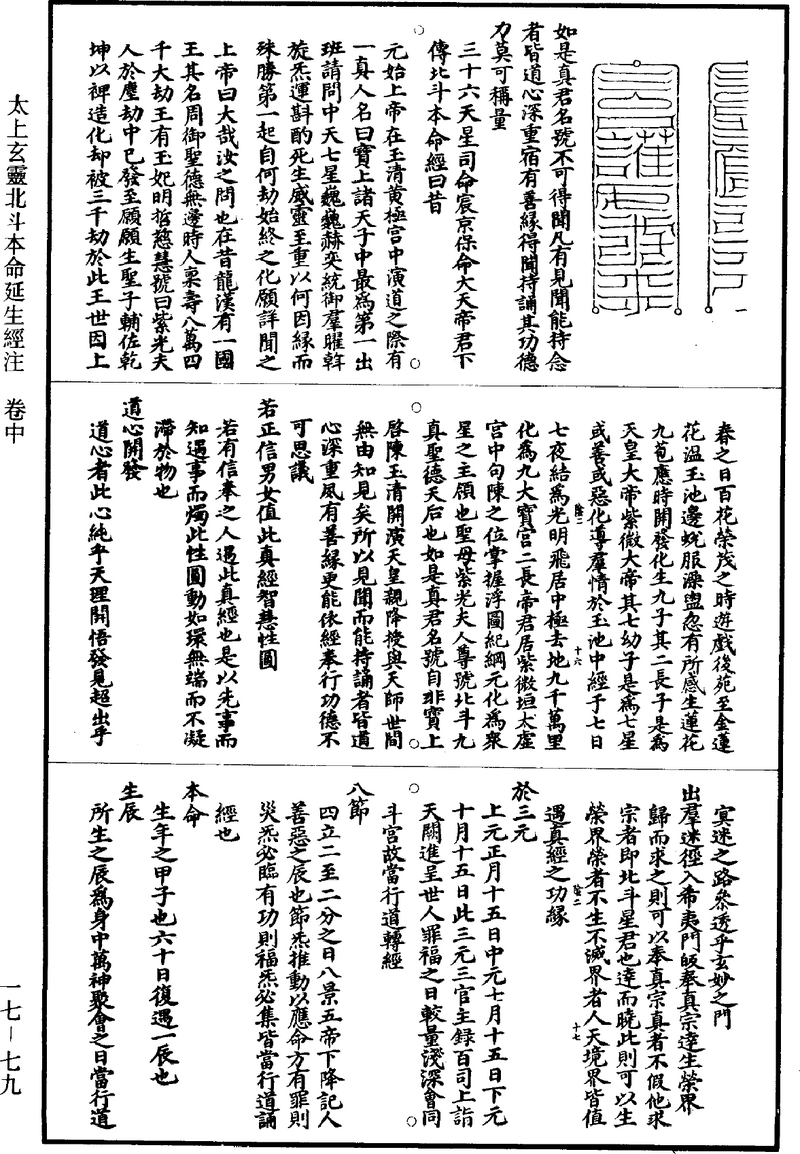 如是真君名號不可得聞凡有見聞能持念
者皆道心深重宿有善緣得聞持誦其功德
力莫可稱量
三十六天星司命宸京保命大天帝君下
傳北斗本命經曰昔
元始上帝在玉清黃極宮中演道之際有
一真人名曰寶上諸天子中最爲第一出
班請問中天七星巍巍赫奕統御羣曜斡
旋炁運斟酌死生威靈至重以何因緣而
殊勝第一起自何劫始終之化願詳聞之
上帝曰大哉汝之問也在昔龍漢有一國
王其名周御聖德無邊時人稟壽八萬四
千大劫王有玉妃明哲慈慧號曰紫光夫
人於塵劫中已發至願願生聖子輔佐乾
坤以裨造化却被三千劫於此王世因上
春之日百花榮茂之時遊戲後苑至金蓮
花溫玉池邊蛻服澡盥忽有所感生蓮花
九苞應時開發化生九子其二長子是爲
天皇大帝紫微大帝其七幼子是爲七星
或善或惡化導羣情於玉池中經于七日
七夜結爲光明飛居中極去地九千萬里
化爲九大寶宮二長帝君居紫微垣太虛
宮中句陳之位掌握浮圖紀綱元化爲衆
星之主領也聖母紫光夫人尊號北斗九
真聖德天后也如是真君名號自非寶上
啓陳玉清開演天皇親降授與天師世間
無由知見矣所以見聞而能持誦者皆道
心深重夙有善緣更能依經奉行功德不
可思議
若正信男女值此真經智慧性圓
若有信奉之人遇此真經也是以先事而
知遇事而燭此性圓動如環無端而不凝
滯於物也
道心開發
道心者此心純乎天理開悟發見超出乎
冥迷之路參透乎玄妙之門
出羣迷徑入希夷門皈奉真宗達生榮界
歸而求之則可以奉真宗真者不假他求
宗者即北斗星君也達而曉此則可以生
榮界榮者不生不滅界者人天境界皆值
遇真經之功緣
於三元
上元正月十五日中元七月十五日下元
十月十五日此三元三官主録百司上詣
天闕進呈世人罪福之日較量淺深會同
斗宮故當行道轉經
八節
四立二至二分之日八景五帝下降記人
善惡之辰也節炁推動以應命方有罪則
災炁必臨有功則福炁必集皆當行道誦
經也
本命
生年之甲子也六十日復遇一辰也
生辰
所生之辰爲身中萬神聚會之日當行道
太上玄靈北斗本命延生經注 卷中
一七－七九
十六
十七